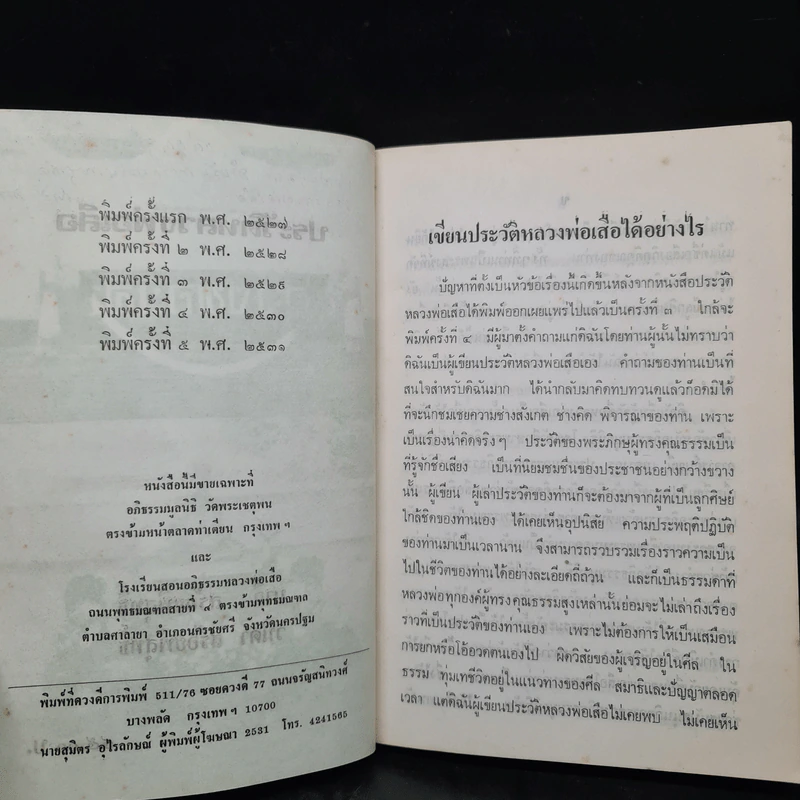 พิมพ์ครั้งแรก พ.ศ. ๒๕๒๗
พิมพ์ครั้งที่ ๒ พ.ศ. ๒๕๒๘
พิมพ์ครั้งที่ ๓ พ.ศ. ๒๕๒๙
พิมพ์ครั้งที่ ๔ พ.ศ. ๒๕๓๐
พิมพ์ครั้งที่ ๕ พ.ศ. ๒๕๓๑
หนังสือนี้มีขายเฉพาะที่
อภิธรรมมูลนิธิ วัดพระเชตุพน
ตรงข้ามหน้าตลาดท่าเตียน กรุงเทพ ฯ
และ
โรงเรียนสอนอภิธรรมหลวงพ่อเสือ
ถนนพุทธมณฑลสายที่ ๔ ตรงข้ามพุทธมณฑล
ตำบลศาลายา อำเภอนครชัยศรี จังหวัดนครปฐม
พิมพ์ที่ดวงดีการพิมพ์ 511/76 ซอยดวงดี 77 ถนนจรัญสนิทวงศ์
บางพลัด กรุงเทพ ฯ 10700
นายสุมิตร อุไรลักษณ์ ผู้พิมพ์ผู้โฆษณา 2531 โทร. 4241565
เขียนประวัติหลวงพ่อเสือได้อย่างไร
ปัญหาที่ตั้งเป็นหัวข้อเรื่องนี้เกิดขึ้นหลังจากหนังสือประวัติ
หลวงพ่อเสือได้พิมพ์ออกเผยแพร่ไปแล้วเป็นครั้งที่ ๓ ใกล้จะ
พิมพ์ครั้งที่ ๔ มีผู้มาตั้งคำถามแก่ดิฉันโดยท่านผู้นั้นไม่ทราบว่า
ดิฉันเป็นผู้เขียนประวัติหลวงพ่อเสือเอง คำถามของท่านเป็นที่
สนใจสำหรับดิฉันมาก ได้นำกลับมาคิดทบทวนดูแล้วก็อดมิได้
ที่จะนึกชมเชยความช่างสังเกต ช่างคิด พิจารณาของท่าน เพราะ
เป็นเรื่องน่าคิดจริง ๆ ประวัติของพระภิกษุผู้ทรงคุณธรรมเป็น
ที่รู้จักชื่อเสียง เป็นที่นิยมชมชื่นของประชาชนอย่างกว้างขวาง
นั้น ผู้เขียน ผู้เล่าประวัติของท่านก็จะต้องมาจากผู้ที่เป็นลูกศิษย์
ใกล้ชิดของท่านเอง ได้เคยเห็นอุปนิสัย ความประพฤติปฏิบัติ
ของท่านมาเป็นเวลานาน จึงสามารถรวบรวมเรื่องราวความเป็น
ไปในชีวิตของท่านได้อย่างละเอียดถี่ถ้วน และก็เป็นธรรมดาที่
หลวงพ่อทุกองค์ผู้ทรงคุณธรรมสูงเหล่านั้นย่อมจะไม่เล่าถึงเรื่อง
ราวที่เป็นประวัติของท่านเอง เพราะไม่ต้องการให้เป็นเสมือน
การยกหรือโอ้อวดตนเองไป ผิดวิสัยของผู้เจริญอยู่ในศีล ใน
ธรรม ทุ่มเทชีวิตอยู่ในแนวทางของศีล สมาธิและปัญญาตลอด
เวลา แต่ดิฉันผู้เขียนประวัติหลวงพ่อเสือไม่เคยพบ ไม่เคยเห็น